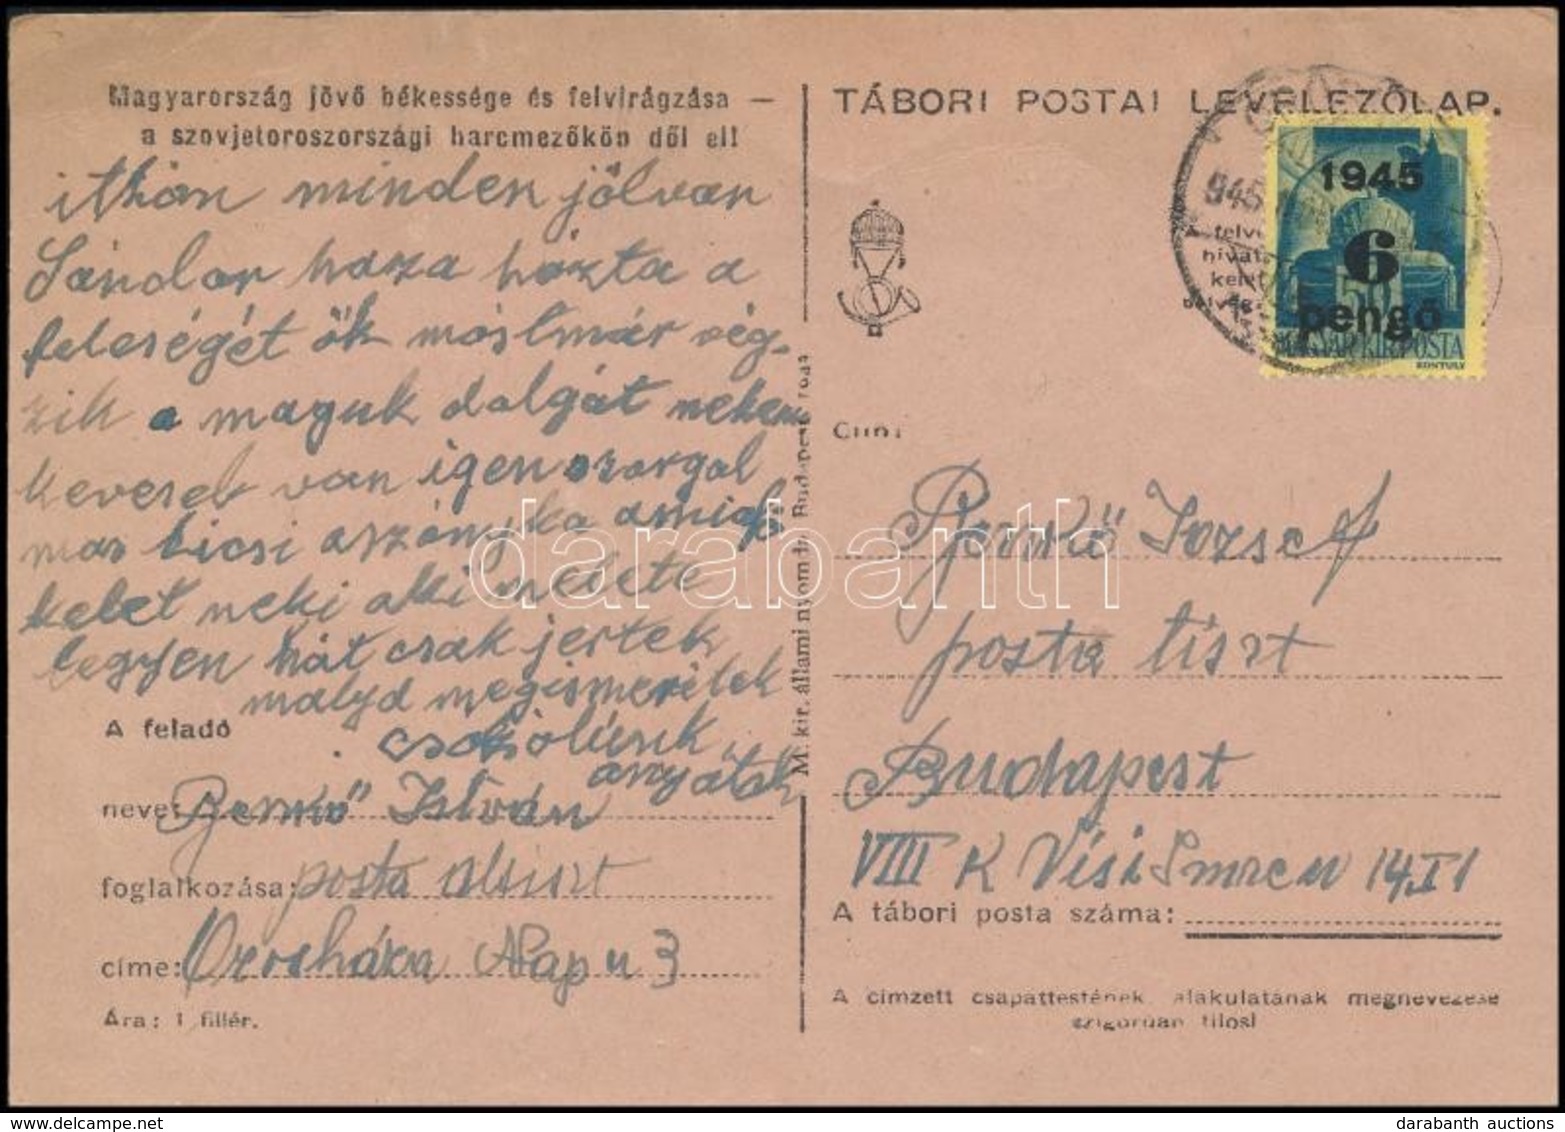 Magyarország jövő békessége és felvirágzása —
a szovjetoroszországi harcmezőkön dől el!
itthon minden jól van
Sándor haza hózta a
feleségét ők mostmár vég-
zik a maguk dolgát nekem
keveseb van igen szorgal
mas kicsi aszonyka
kelet neki aki
legyen hát csak jertek
majd megismeritek
csokolunk
anyátok
A feladó
neve: István
foglalkozása: posta altiszt
címe: Orosháza Nap u 3
Ára: 1 fillér.
M. kir. állami nyomda, Budapest
TÁBORI POSTAI LEVELEZŐLAP.
945
1945
6
pengő
50
MAGYAR KIR. POSTA
KONTULY
Cím:
József
posta tiszt
Budapest
VIII K Vísi Imreu 14, I 1
A tábori posta száma:
A címzett csapattestének, alakulatának megnevezése
szigorúan tilos!
darabanth
darabanth auctions